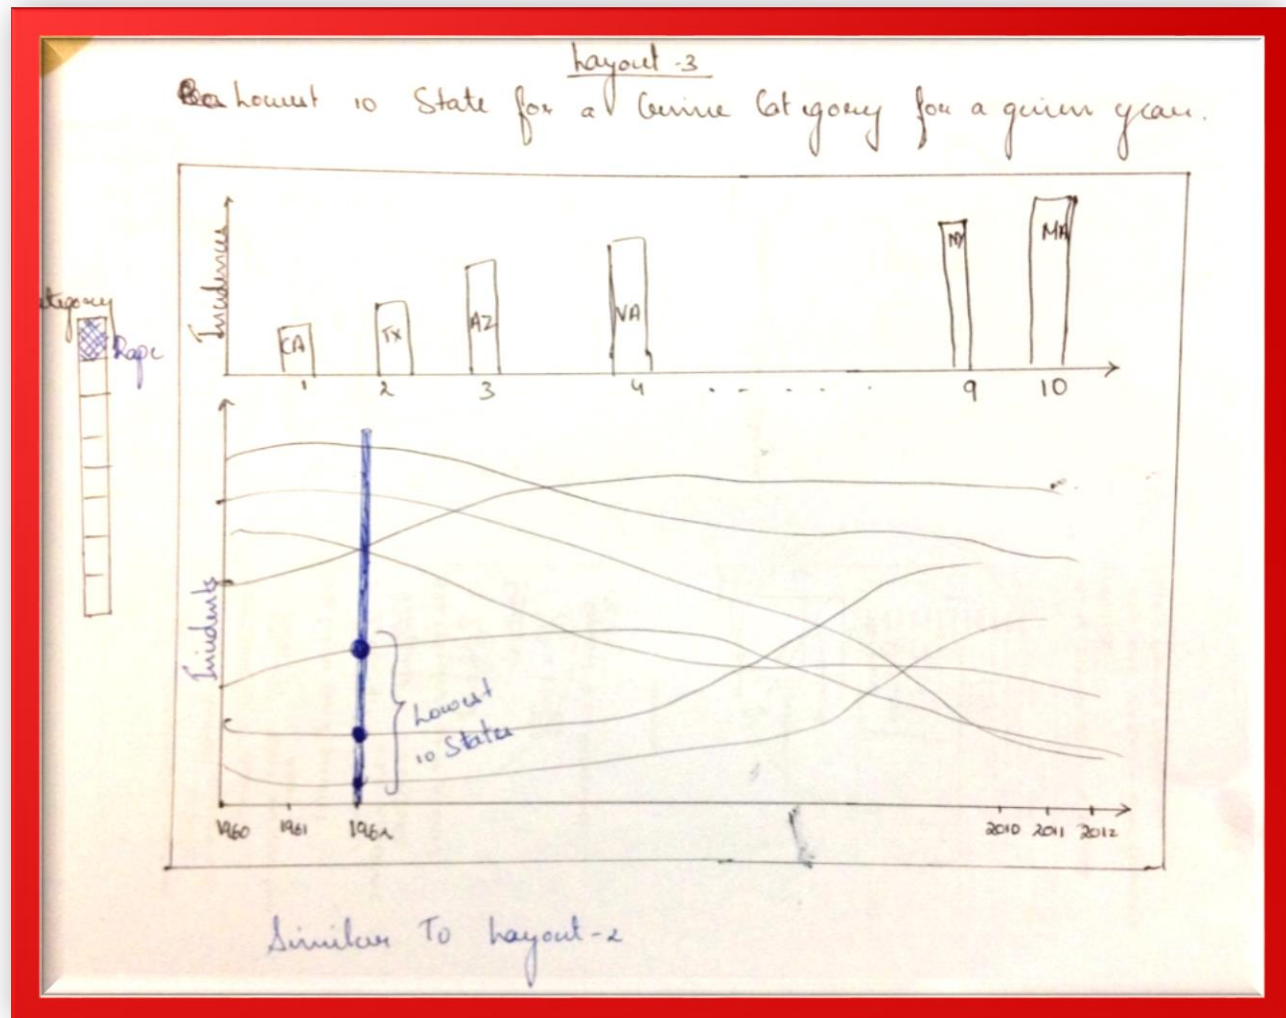 Layout-3
Lowest 10 State for a Crime Category for a given year.
Incidences
CA
TX
AZ
VA
NY
MA
1 2 3 4 . - - . . . 9 10
ategory
Rape
Incidents
Lowest
10 States
1960 1961 1962 2010 2011 2012
Similar To Layout-2